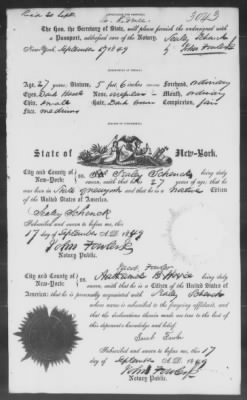 3043
Hon. the Secretary of State, will please furnish the undersigned with
a Passport, addressed care of the Notary.
New-York, September 17 1849 by John Fowler Jr
Age, 27 years, Stature, 5 feet 6 inches Forehead, ordinary
Eyes, Dark Hazel Nose, Mouth, ordinary
Chin, small Hair, Dark brown Complexion, fair
Face, medium
State of New-York.
City and County of
New-York: ss. Schenck being duly
sworn, saith, that he is 27 years of age; that he
was born in State of New York and is a native Citizen
of the United States of America.
Schenck
Subscribed and sworn to before me, this
17 day of September A.D. 1849
John Fowler Jr
Notary Public.
Jacob Fowler
City and County of
New-York: ss. being duly
sworn, saith, that he is a Citizen of the United States of
America: that he is personally acquainted with Schenck
whose name is subscribed to the foregoing affidavit, and
that the declarations therein made are true to the best of
his deponent's knowledge and belief.
Jacob Fowler
Subscribed and sworn to before me, this 17
day of September A.D. 1849
John Fowler Jr
Notary Public.